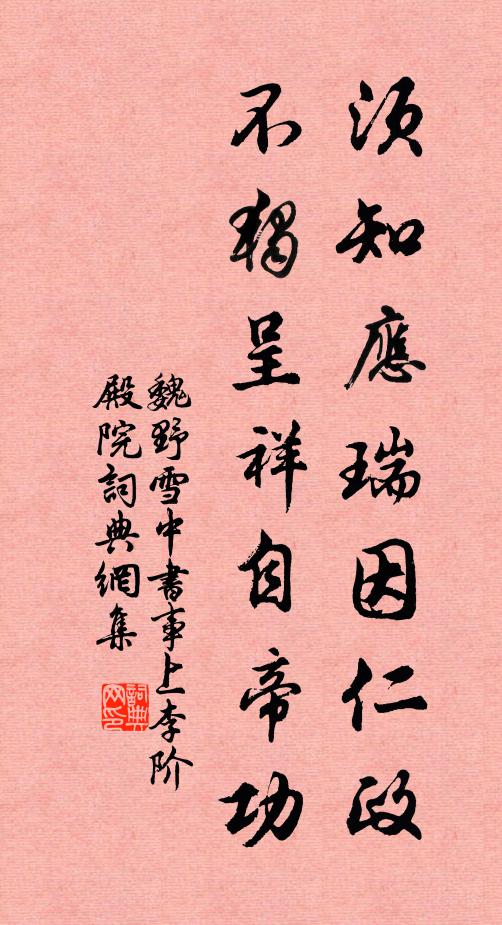 须知應瑞因仁政
不独呈祥自帝功
魏野雪中書事上李阶
殿院詞典網集
詞典网印